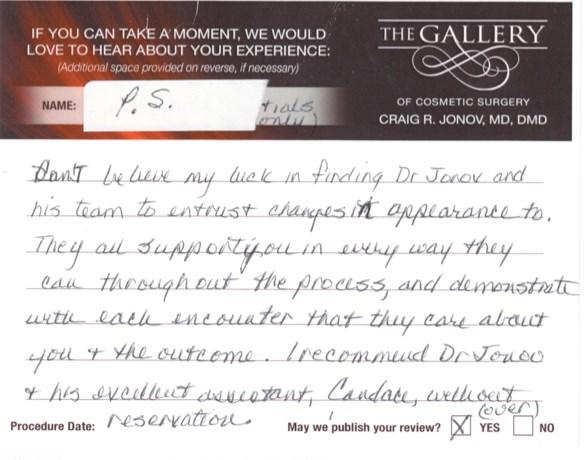 IF YOU CAN TAKE A MOMENT, WE WOULD
LOVE TO HEAR ABOUT YOUR EXPERIENCE:
(Additional space provided on reverse, if necessary)
NAME: P.S. tials
only)
THE GALLERY
OF COSMETIC SURGERY
CRAIG R. JONOV, MD, DMD
Don't believe my luck in finding Dr Jonov and
his team to entrust changes in appearance to.
They all support you in every way they
can throughout the process, and demonstrate
with each encounter that they care about
you + the outcome. I recommend Dr Jonov
+ his excellent assistant, Candace, without
(over)
reservation.
Procedure Date: May we publish your review? X YES NO